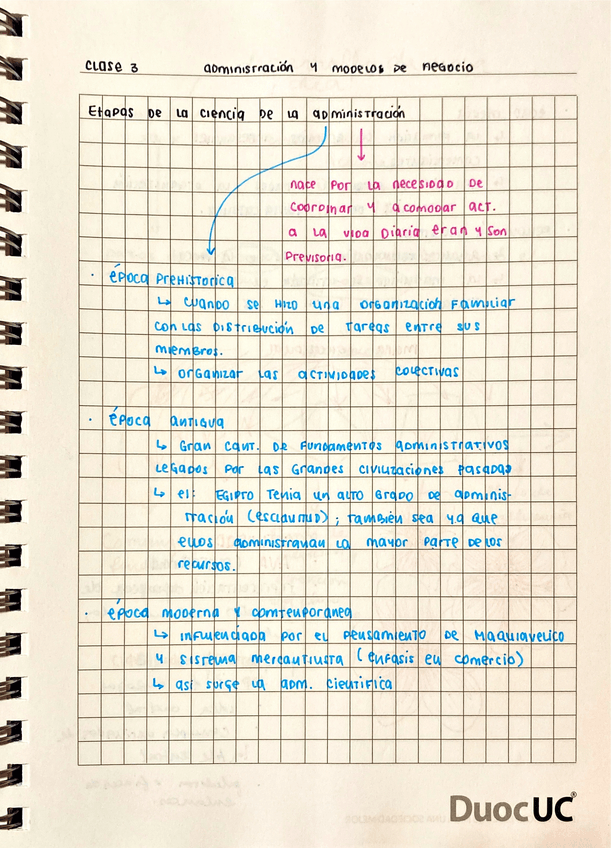 Clase 3 administración y modelos de negocio
Etapas de la ciencia de la administración
nace por la necesidad de
coordinar y acomodar act.
a la vida diaria eran y son
Previsoria.
· época prehistorica
↳ cuando se hizo una organización familiar
con las distribución de tareas entre sus
miembros.
↳ organizar las actividades colectivas
· época antigua
↳ Gran cant. de fundamentos administrativos
legados por las grandes civilizaciones pasadas
↳ ej: Egipto tenia un alto grado de adminis-
tración (esclavitud); también sea ya que
ellos administravan la mayor parte de los
recursos.
· época moderna y comtemporánea
↳ influenciada por el pensamiento de Maquiavelico
y sistema mercantilista (énfasis en comercio)
↳ asi surge la adm. cientifica
Duoc UC®